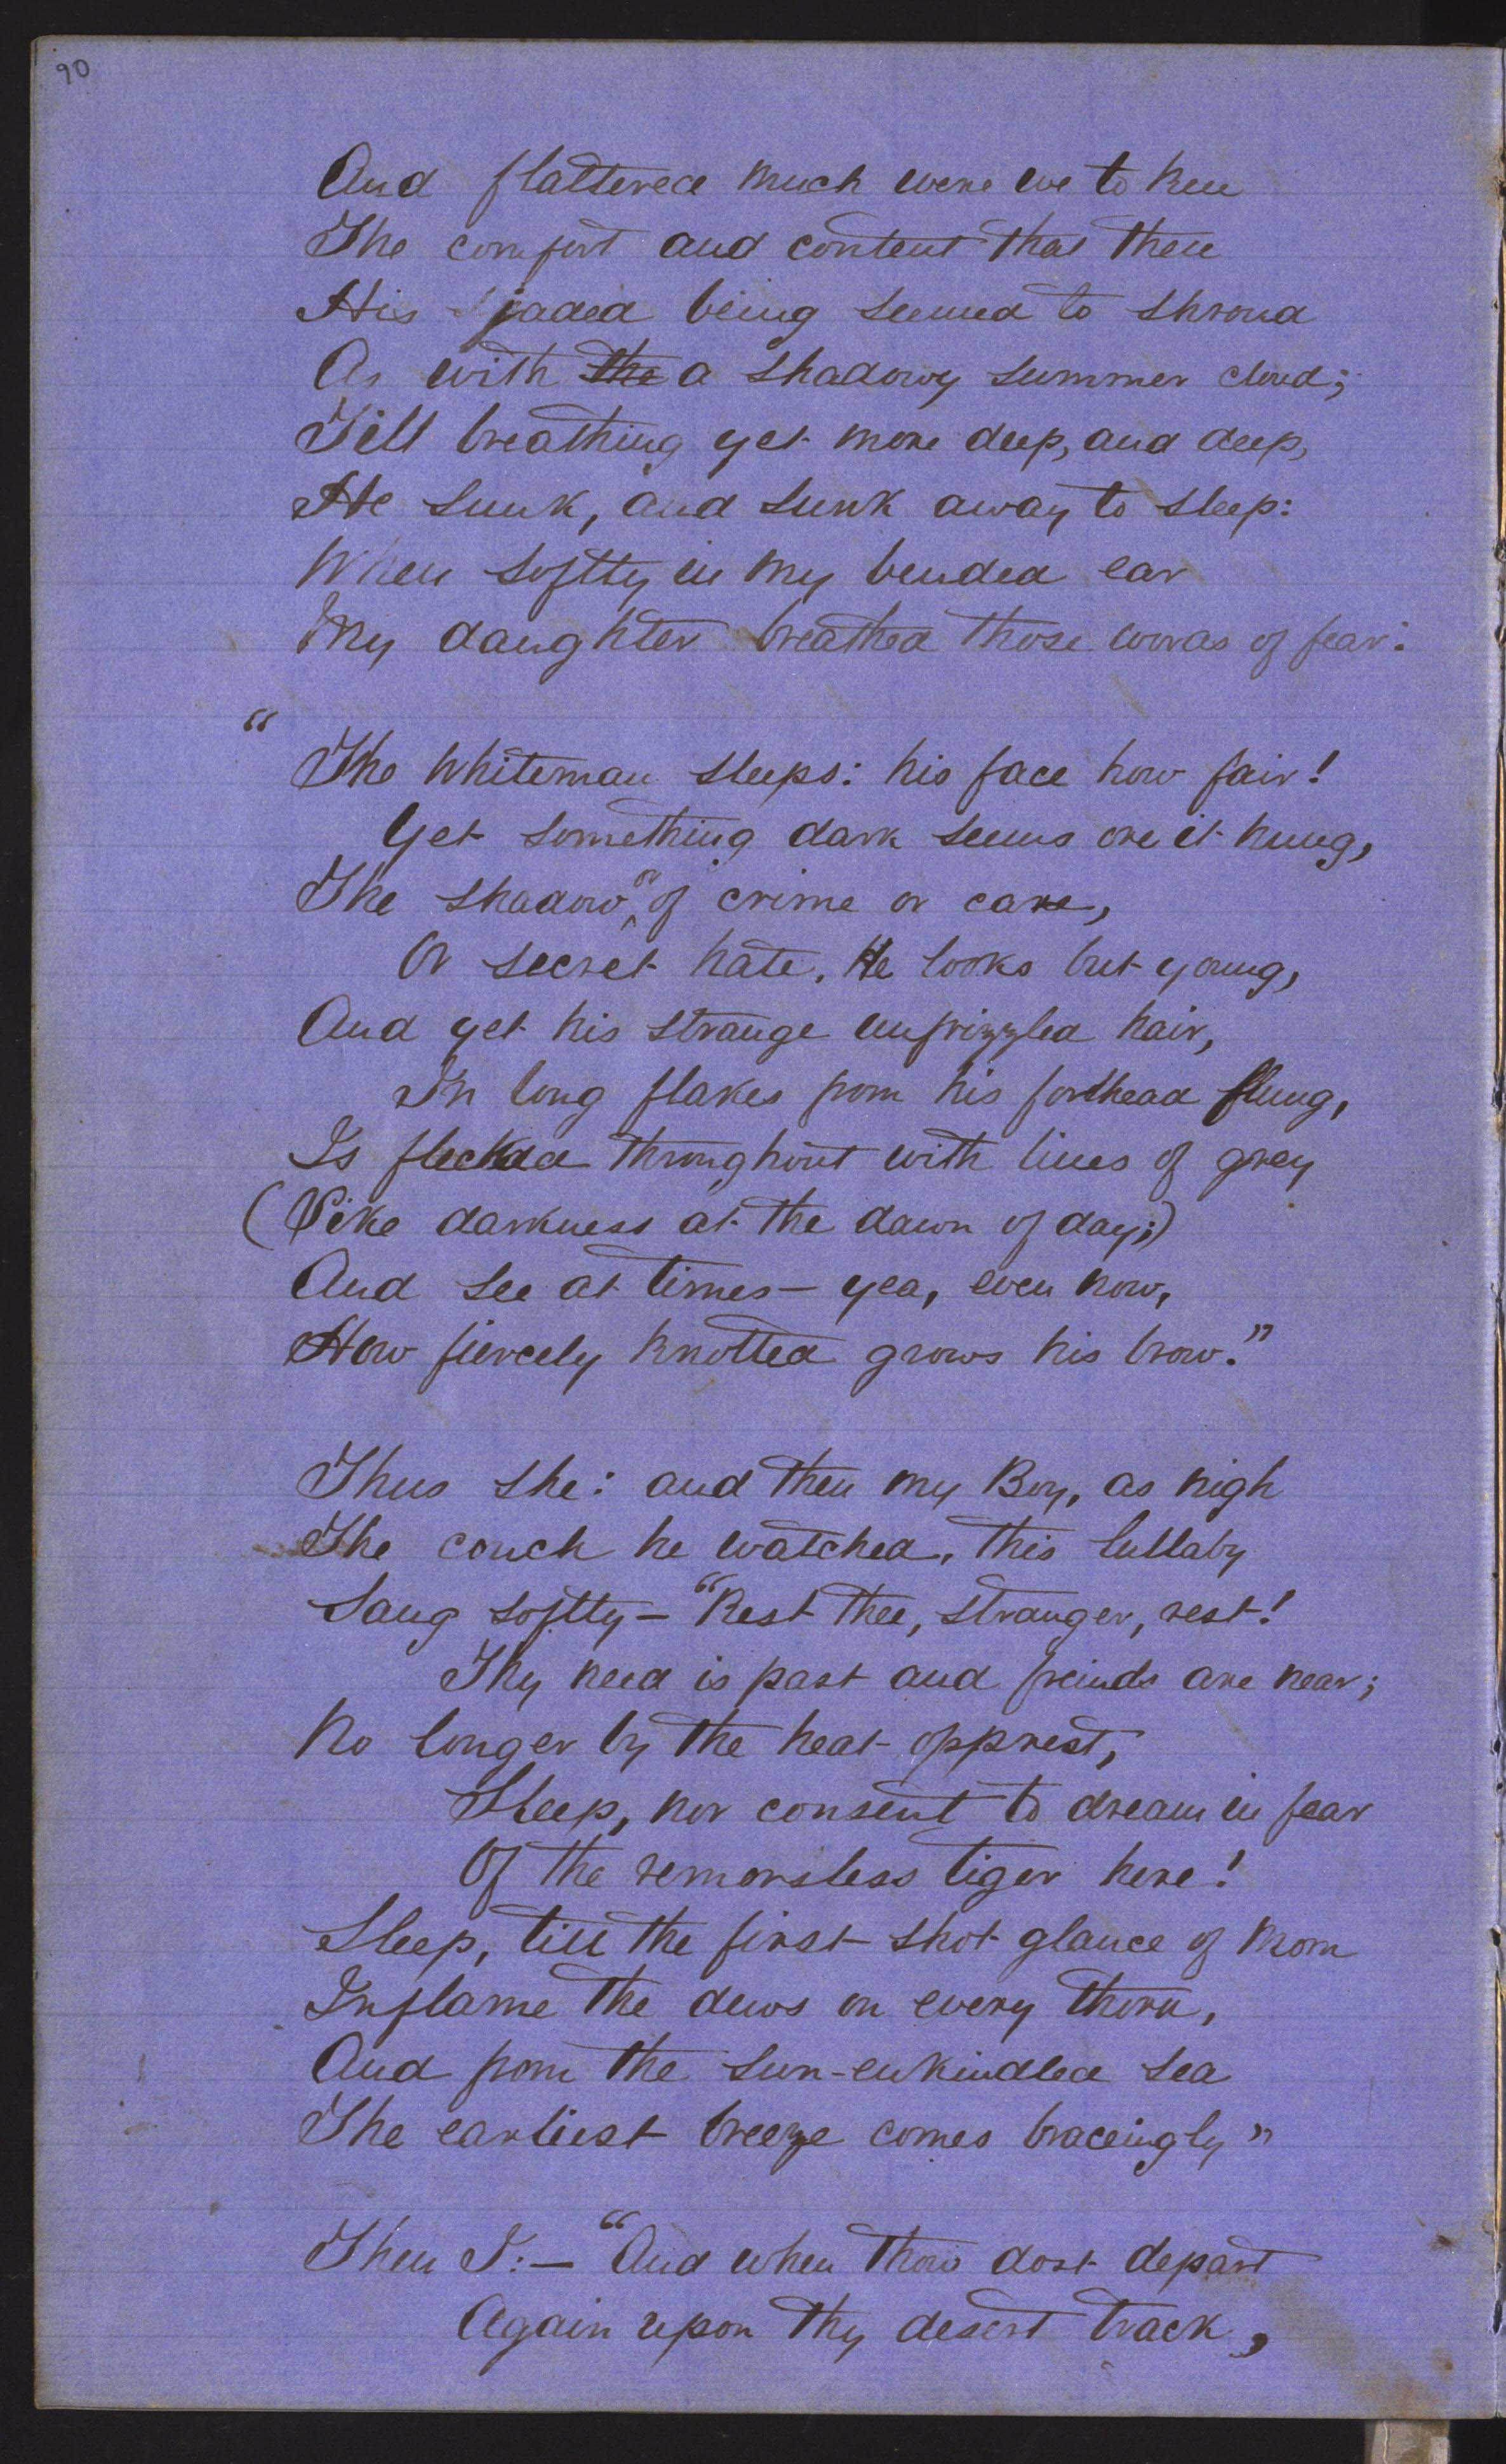 90
And flattered much were we to ken
The comfort and content that then
His jaded being seemed to shroud
As with the a shadowy summer cloud;
Till breathing yet more deep, and deep,
He sunk, and sunk away to sleep:
When softly in my bended ear
My daughter breathed those words of fear:
"
The Whiteman sleeps: his face how fair!
Yet something dark seems ore it hung,
The shadow or of crime or care,
Or secret hate. He looks but young,
And yet his strange unfrizzled hair,
In long flakes from his forehead flung,
Is flecked throughout with lines of grey
(Like darkness at the dawn of day;)
And see at times – yea, even now,
How fiercely knotted grows his brow."
Thus she: and then my Boy, as nigh
The couch he watched, this lullaby
Sang softly – "Rest thee, stranger, rest!
Thy need is past and freinds are near;
No longer by the heat opprest,
Sleep, nor consent to dream in fear
Of the remorsless tiger here!
Sleep, till the first shot glance of Morn
Inflame the dews on every thorn,
And from the sun-enkindled sea
The earliest breeze comes braceingly"
Then I: – "And when thou dost depart
Again upon thy desert track,